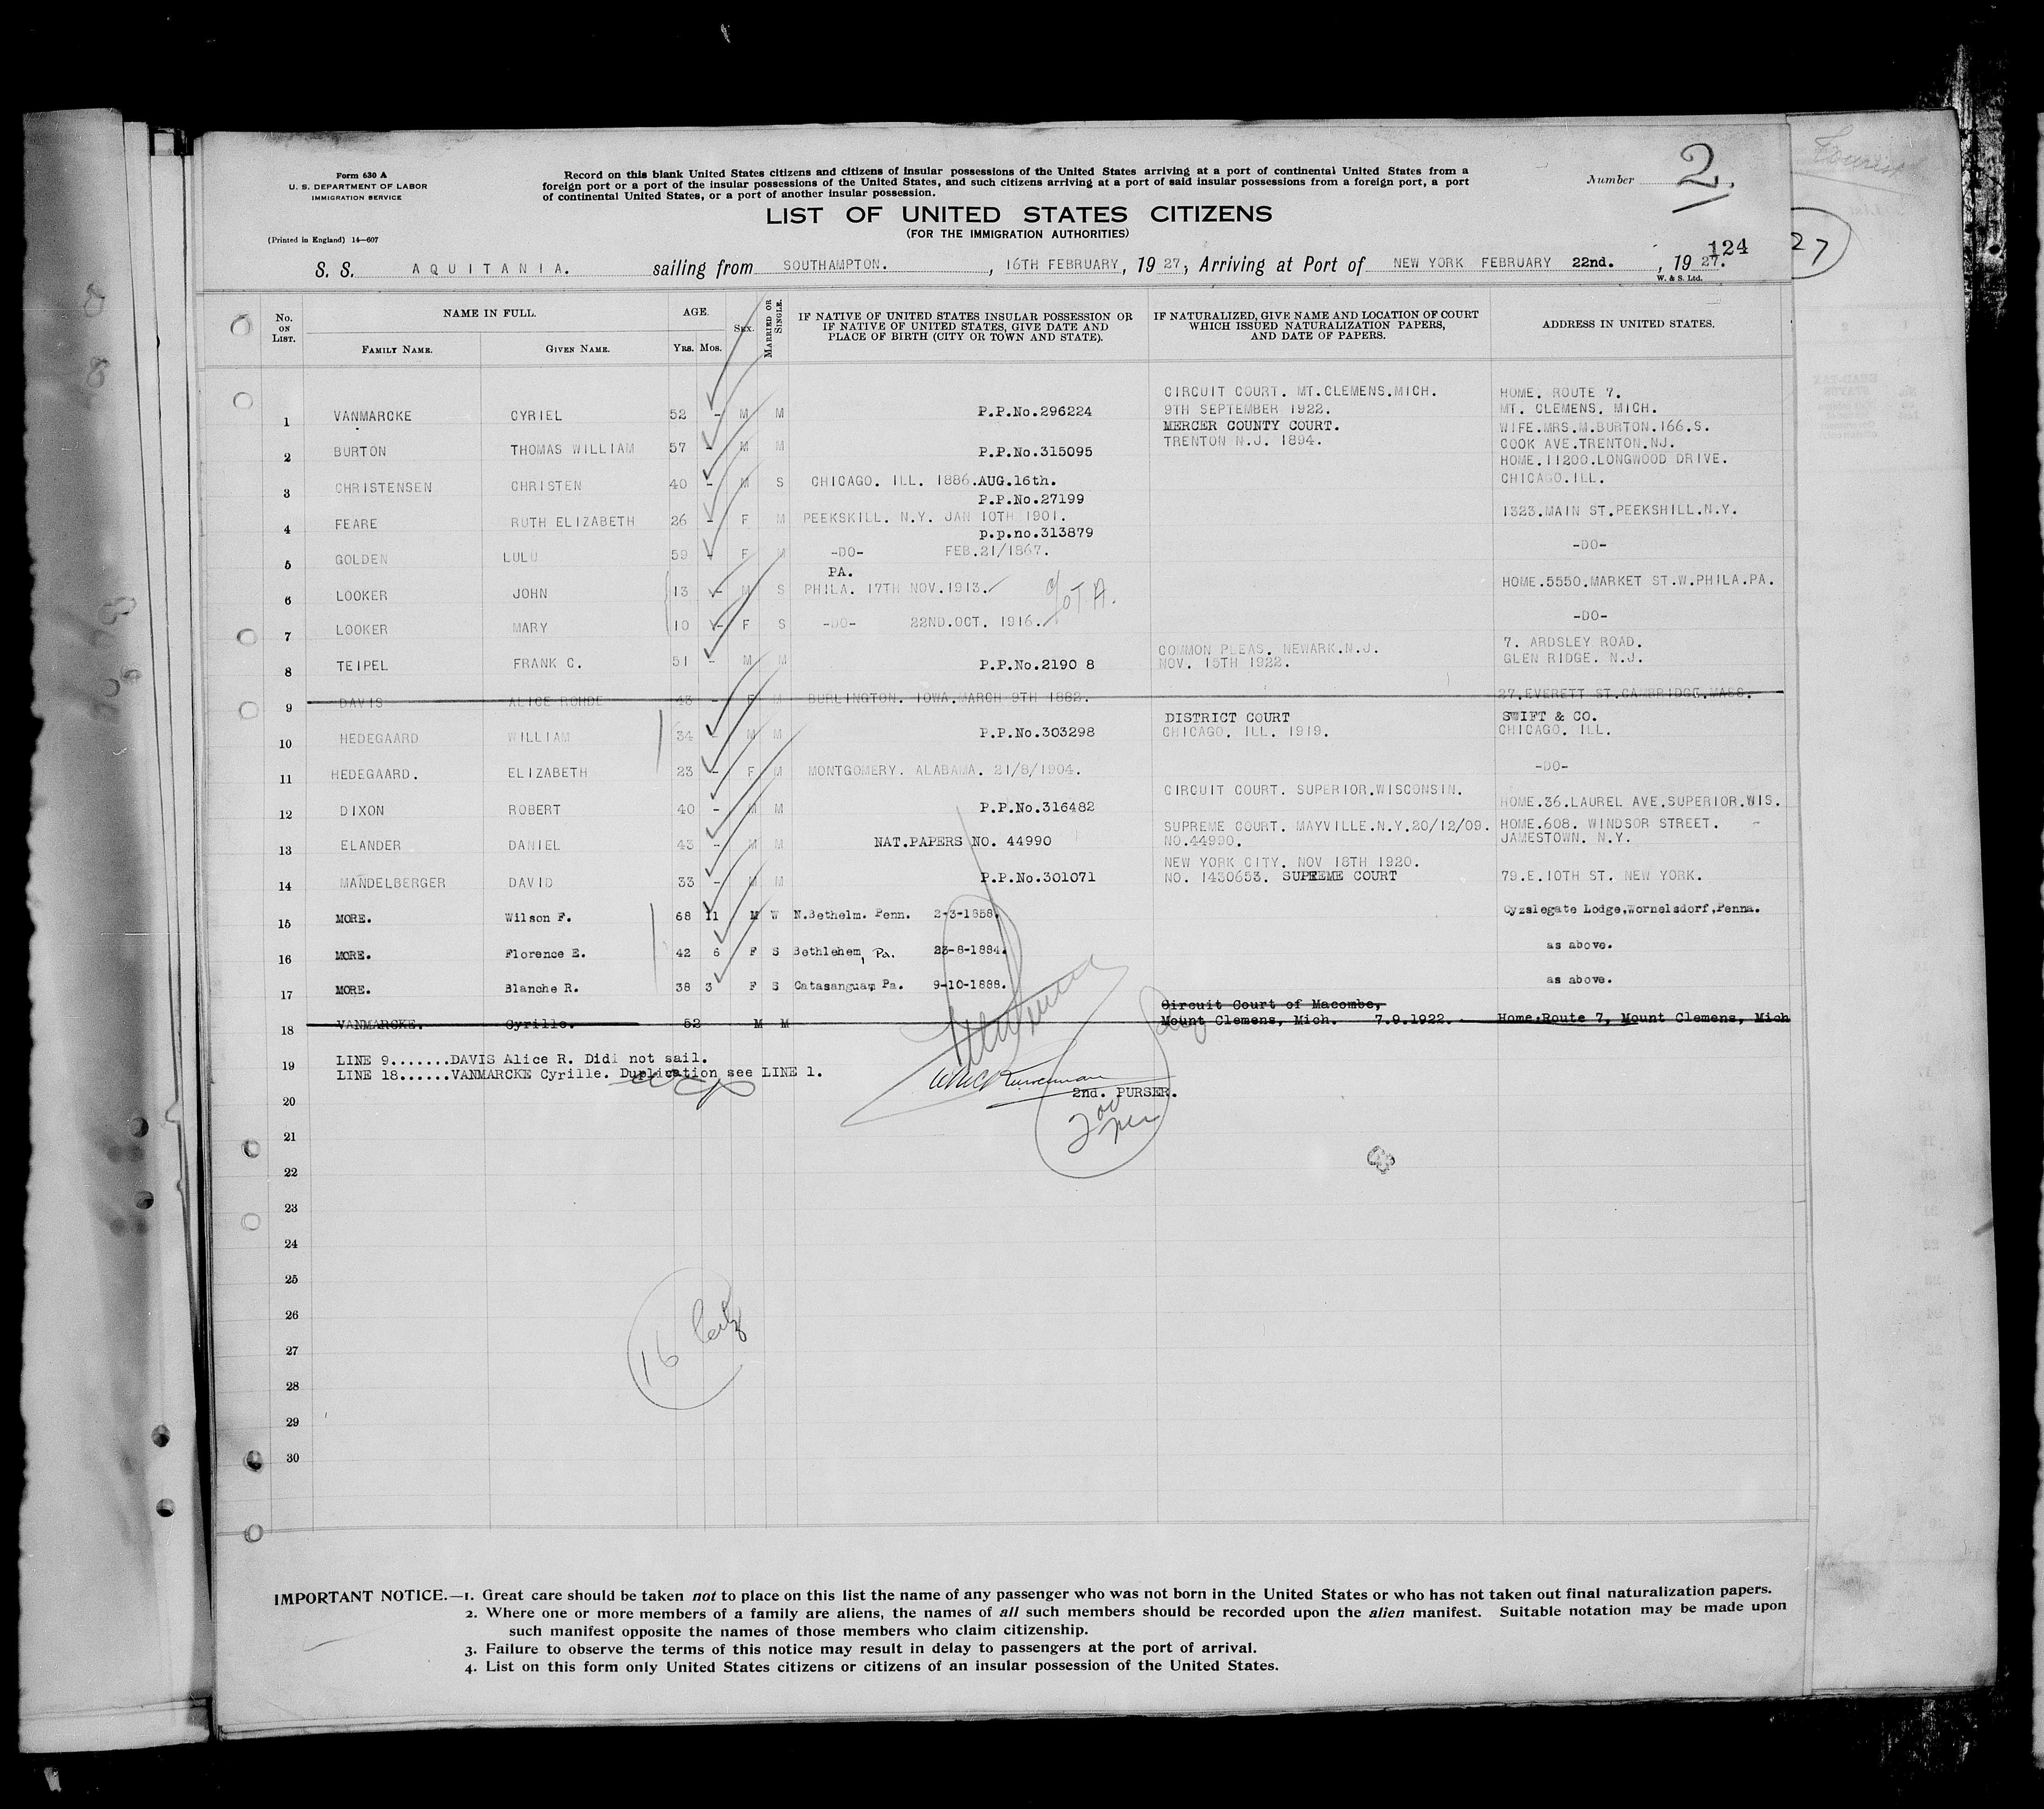 Form 630 A
U. S. DEPARTMENT OF LABOR
IMMIGRATION SERVICE
(Printed in England) 14—607
Record on this blank United States citizens and citizens of insular possessions of the United States arriving at a port of continental United States from a
foreign port or a port of the insular possessions of the United States, and such citizens arriving at a port of said insular possessions from a foreign port, a port
of continental United States, or a port of another insular possession.
Number 2
LIST OF UNITED STATES CITIZENS
(FOR THE IMMIGRATION AUTHORITIES)
124
27
S. S. AQUITANIA. sailing from SOUTHAMPTON. , 16TH FEBRUARY, 19 27, Arriving at Port of NEW YORK FEBRUARY 22nd. , 19 27.
W. & S. Ltd.
No. ON LIST. NAME IN FULL. AGE. SEX. MARRIED OR SINGLE. IF NATIVE OF UNITED STATES INSULAR POSSESSION OR IF NATIVE OF UNITED STATES, GIVE DATE AND PLACE OF BIRTH (CITY OR TOWN AND STATE). IF NATURALIZED, GIVE NAME AND LOCATION OF COURT WHICH ISSUED NATURALIZATION PAPERS, AND DATE OF PAPERS. ADDRESS IN UNITED STATES.
FAMILY NAME. GIVEN NAME. Yrs. Mos.
1 VANMARCKE CYRIEL 52 - M M P.P.No.296224 CIRCUIT COURT. MT.CLEMENS.MICH. 9TH SEPTEMBER 1922. HOME. ROUTE 7. MT. CLEMENS. MICH.
2 BURTON THOMAS WILLIAM 57 - M M P.P.No.315095 MERCER COUNTY COURT. TRENTON N.J. 1894. WIFE.MRS.M.BURTON.166.S. COOK AVE.TRENTON.NJ.
3 CHRISTENSEN CHRISTEN 40 - M S CHICAGO. ILL. 1886.AUG.16th. P.P.No.27199 HOME.11200.LONGWOOD DRIVE. CHICAGO.ILL.
4 FEARE RUTH ELIZABETH 26 - F M PEEKSKILL. N.Y. JAN 10TH 1901. p.p.no.313879 1323.MAIN ST.PEEKSHILL.N.Y.
5 GOLDEN LULU 59 - F M -DO- FEB.21/1867. -DO-
6 LOOKER JOHN 13 - M S PA. PHILA. 17TH NOV.1913. HOME.5550.MARKET ST.W.PHILA.PA.
7 LOOKER MARY 10 - F S -DO- 22ND.OCT. 1916. -DO-
8 TEIPEL FRANK C. 51 - M M P.P.No.2190 8 COMMON PLEAS. NEWARK.N.J. NOV. 15TH 1922. 7. ARDSLEY ROAD. GLEN RIDGE. N.J.
9 DAVIS ALICE ROHDE 43 - F M BURLINGTON. IOWA.MARCH 9TH 1882. 27.EVERETT ST.CAMBRIDGE.MASS.
10 HEDEGAARD WILLIAM 34 - M M P.P.No.303298 DISTRICT COURT CHICAGO. ILL. 1919. SWIFT & CO. CHICAGO. ILL.
11 HEDEGAARD. ELIZABETH 23 - F M MONTGOMERY. ALABAMA. 21/8/1904. -DO-
12 DIXON ROBERT 40 - M M P.P.No.316482 CIRCUIT COURT. SUPERIOR.WISCONSIN. HOME.36.LAUREL AVE.SUPERIOR.WIS.
13 ELANDER DANIEL 43 - M M NAT.PAPERS NO. 44990 SUPREME COURT. MAYVILLE.N.Y.20/12/09. NO.44990. HOME.608. WINDSOR STREET. JAMESTOWN. N.Y.
14 MANDELBERGER DAVID 33 - M M P.P.No.301071 NEW YORK CITY. NOV 18TH 1920. NO. 1430653. SUPREME COURT 79.E.10TH ST. NEW YORK.
15 MORE. Wilson F. 68 11 M W N.Bethelm. Penn. 2-3-1858. Cyzslegate Lodge,Wornelsdorf,Penna.
16 MORE. Florence E. 42 6 F S Bethlehem, Pa. 23-8-1884. as above.
17 MORE. Blanche R. 38 3 F S Catasangua, Pa. 9-10-1888. as above.
18 VANMARCKE. Cyrille. 52 M M Circuit Court of Macombe, Mount Clemens, Mich. 7.9.1922. Home.Route 7, Mount Clemens, Mich
19 LINE 9.......DAVIS Alice R. Did not sail.
LINE 18......VANMARCKE Cyrille. Duplication see LINE 1.
20 2nd. PURSER.
21
22
23
24
25
26
27
28
29
30
16
IMPORTANT NOTICE.—1. Great care should be taken not to place on this list the name of any passenger who was not born in the United States or who has not taken out final naturalization papers.
2. Where one or more members of a family are aliens, the names of all such members should be recorded upon the alien manifest. Suitable notation may be made upon
such manifest opposite the names of those members who claim citizenship.
3. Failure to observe the terms of this notice may result in delay to passengers at the port of arrival.
4. List on this form only United States citizens or citizens of an insular possession of the United States.